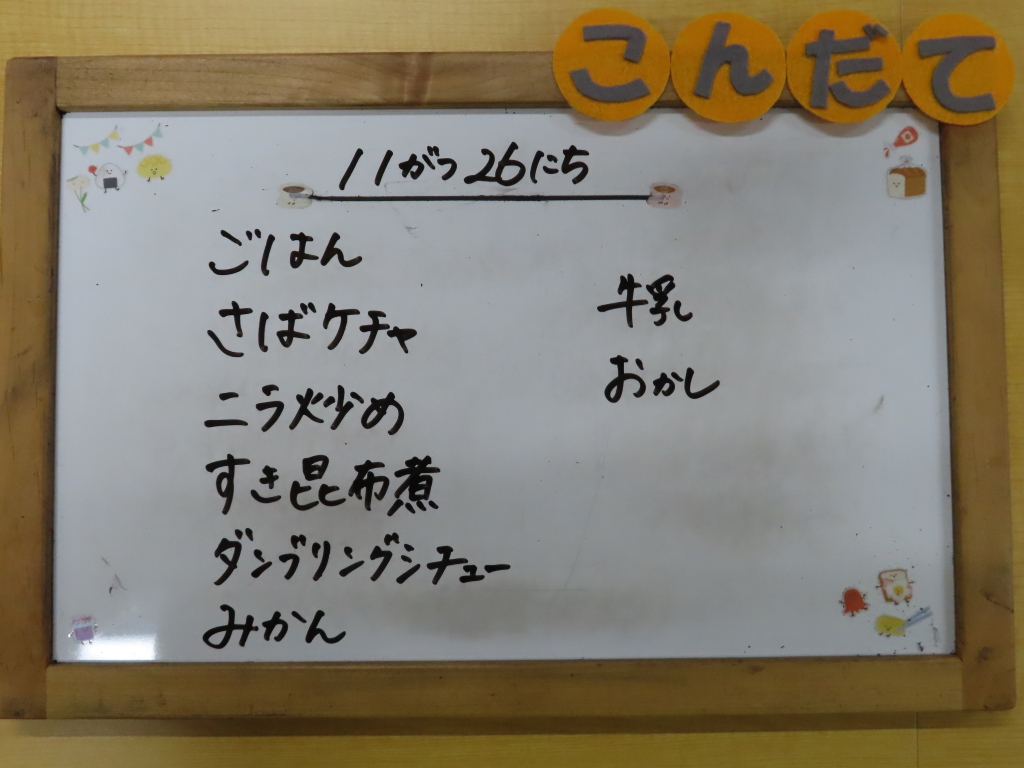 こんだて
11がつ26にち
ごはん
さばケチャ
ニラ炒め
すき昆布煮
ダンブリングシチュー
みかん
牛乳
おかし